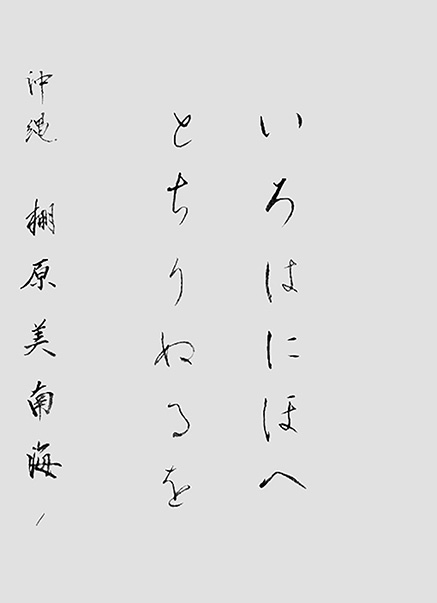 いろはにほへ
とちりぬるを
沖縄 棚原美南海